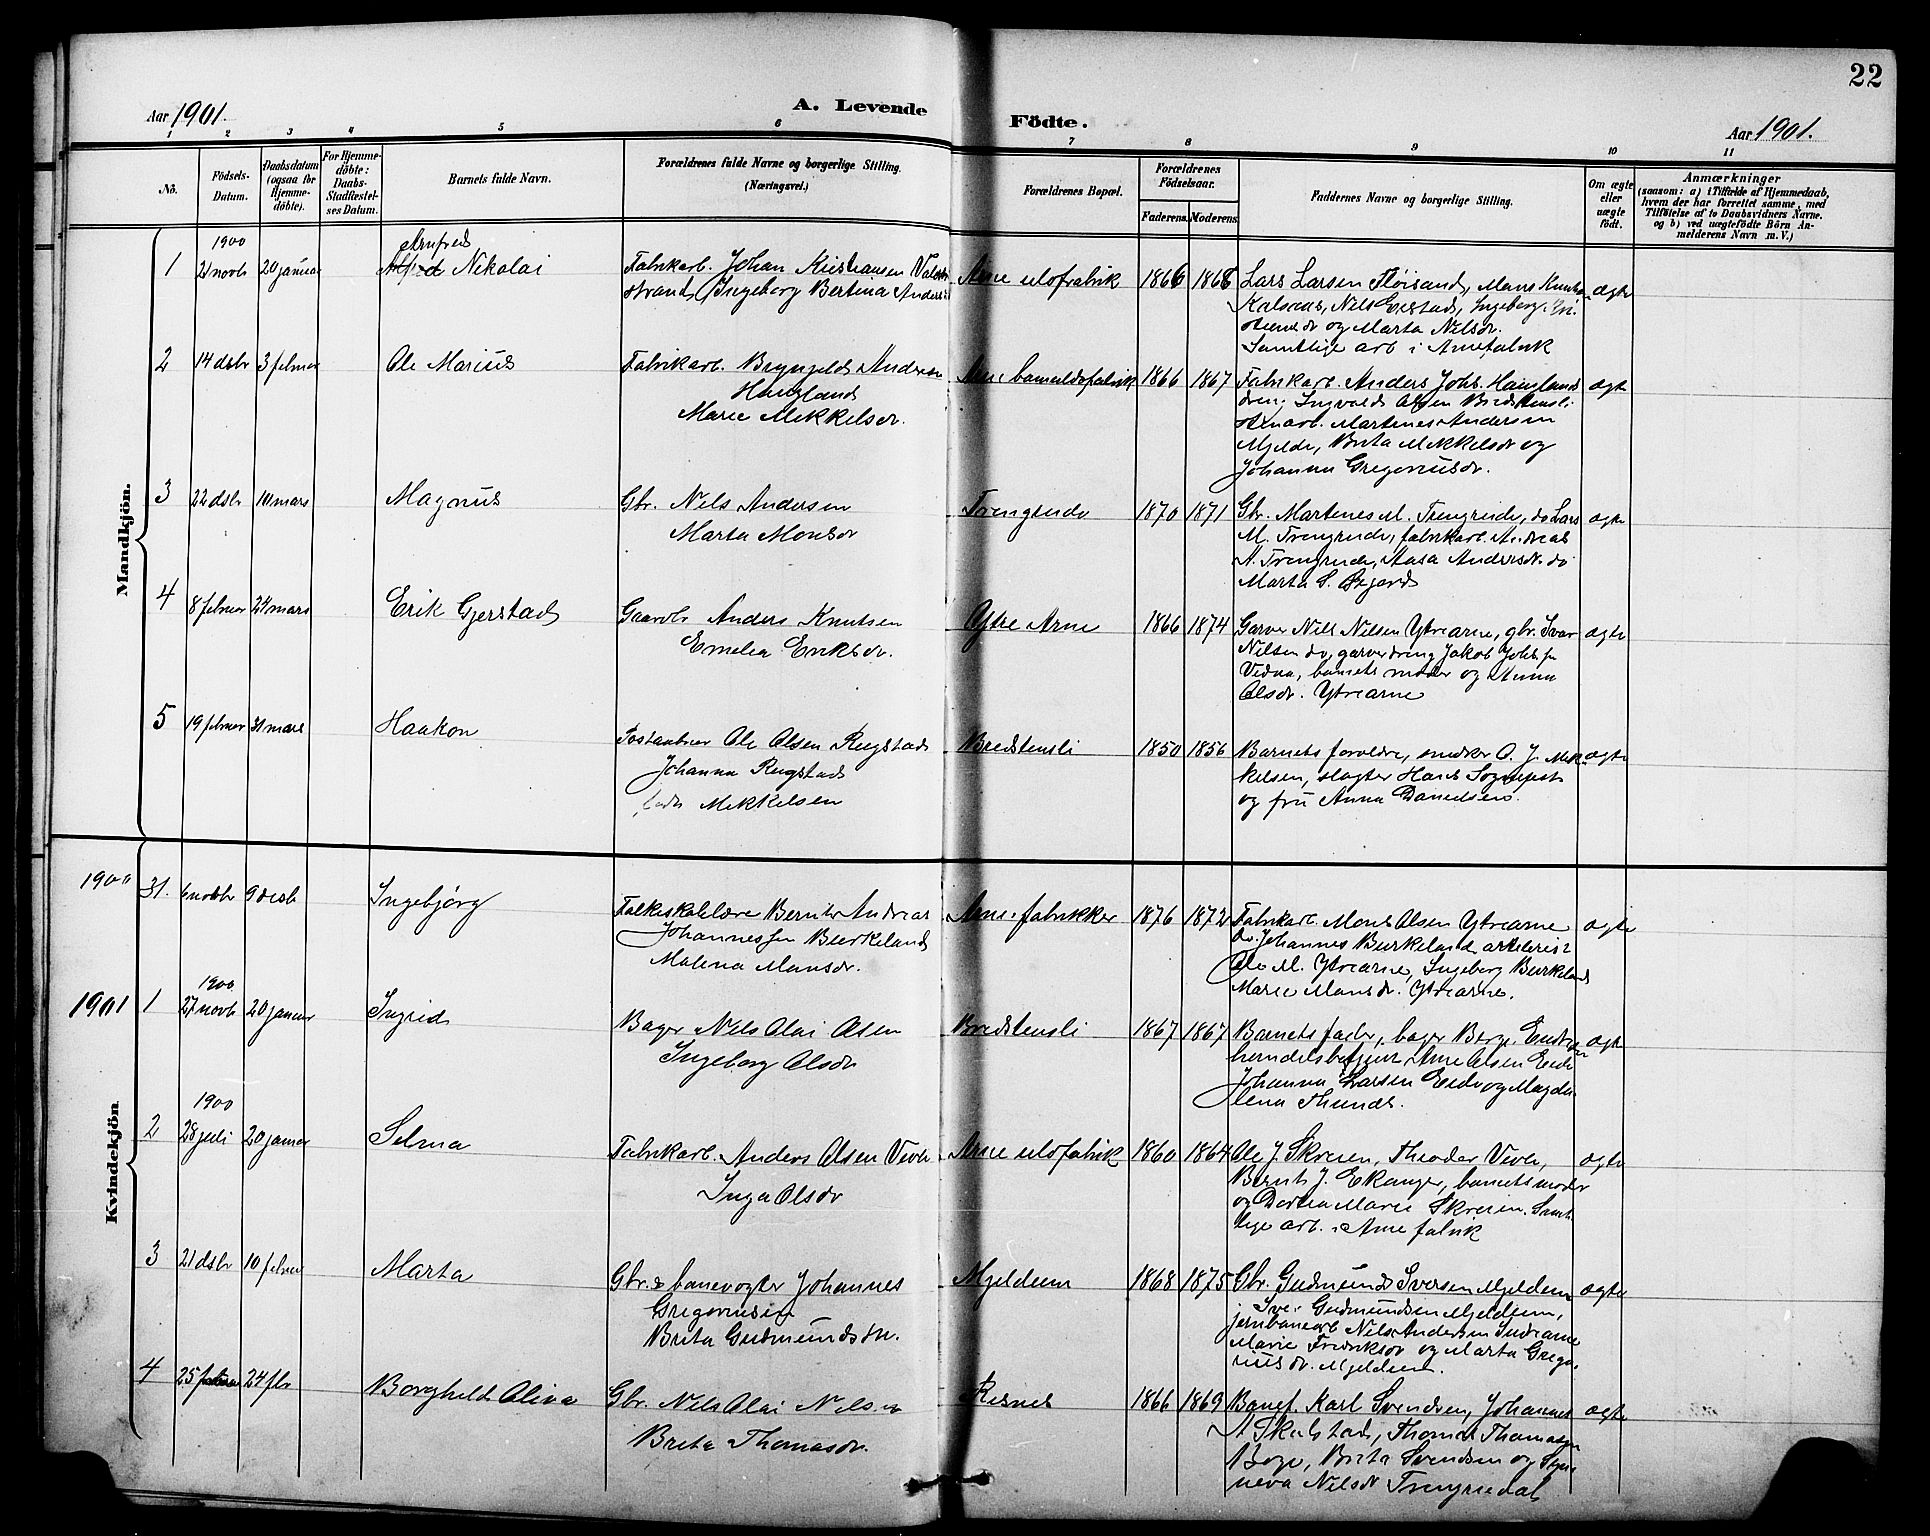 22
Aar 1901.
A. Levende
Födte.
Aar 1901.
1 2 3 4 5 6 7 8 9 10 11
No.
Födsels-Datum.
Daabsdatum (ogsaa for Hjemme-döbte).
For Hjemme-döbte: Daabs-Stadfæstel-ses Datum.
Barnets fulde Navn.
Forældrenes fulde Navne og borgerlige Stilling. (Næringsvei.)
Forældrenes Bopæl.
Forældrenes Födselsaar.
Faderens. Moderens.
Faddernes Navne og borgerlige Stilling.
Om ægte eller uægte födt.
Anmærkninger
(saasom: a) i Tilfælde af Hjemmedaab, hvem der har forrettet samme, med Tilföielse af to Daabsvidners Navne. og b) ved uægtefödte Börn An-melderens Navn m. V.)
Mandkjön.
1900
Arnfred
1 21 novb 20 januar Nikolai
Fabrikarb. Johan Kristiansen
strand, Ingeborg Bertina
Arne uldfabrik 1866 1868
Lars Larsen Fløisand, Mons
Nils Eirstad, Ingeborg
og Marta Nilsdr.
Samtlige arb i Arne fabrik
ægte
2 14 dsbr 3 februar Ole Marius
Fabrikarb. Brynjeld Andersen
Haugland
Marie Mikkelsdr.
Arne bomuldsfabrik 1866 1867
Fabrikarb. Anders Johs. Haugland
Ingvald Olsen Bredstensli
stenarb. Martenes Andersen
Mjelde, Brita Mikkelsdr og
Johanna Gregoriusdr.
ægte
3 22 dsbr 10 mars Magnus
Gbr. Nils Andersen
Marta Monsdr
Trengerude 1870 1871
Gbr. Martenes M. Trengerude, do Lars
M. Trengerude, fabrikarb. Andreas
A. Trengerude, Aasa Andersdr. do
Marta S.
ægte
4 8 februar 24 mars Erik Gjerstad
Gaardb. Anders Knutsen
Emelia Eriksdr.
Ytre Arne 1866 1874
Garver Nils Nilsen Ytrearne, gbr. Ivar
Nilsen do, garverdreng Jakob Johs.sen
Vidnes, barnets moder og Anna
Olsdr. Ytrearne
ægte
5 19 februar 31 mars Haakon
Postaabner Ole Olsen Rugstad
Johanna Rugstad
født Mikkelsen
Bredstensli 1850 1856
Barnets forældre, snedker O. J. Mik-
kelsen, slagter Hans
og fru Anna Danielsen.
ægte
Kvindekjön
1900
31. 6 novbr 9 desb Ingebjørg
Folkeskolelærer Bernt Andreas
Johannessen Burkeland
Malena Monsdr.
Arne fabrikker 1876 1872
Fabrikarb. Mons Olsen Ytrearne
do. Johannes Burkeland
Ole M. Ytrearne, Ingeborg Burkeland
Marie Monsdr. Ytrearne.
ægte
1901
1900
1 27 novb 20 januar Ingrid
Bager Nils Olai Olsen
Ingeborg Olsdr
Bredstensli 1867 1867
Barnets fader, bager Berge
handelsbetjent Arne Olsen Eide
Johanna Larsen Eide og Magda-
lena Thunes.
ægte
1900
2 28 juli 20 januar Selma
Fabrikarb. Anders Olsen Vevle
Inga Olsdr
Arne uldfabrik 1860 1864
Ole J. Skreien, Theodor Vevle,
Bernt J. Ekanger, barnets moder
og Dortea Marie Skreien. Samt-
lige arb. i Arne fabrik
ægte
3 21 dsbr 10 februar Marta
Gbr. & banevogter Johannes
Gregoriusen
Brita Gudmundsdr.
Mjeldeim 1868 1875
Gbr. Gudmund Iversen Mjeldeim
Iver Gudmundsen Mjeldeim,
jernbanearb Nils Andersen Indrearne
Marie Fredriksdr og Marta Grego-
riusdr. Mjeldeim.
ægte
4 25 24 fbr Borghild Oliva
Gbr. Nils Olai Nilsen
Brita Thomasdr.
Risnes 1866 1869
Banef. Karl Svendsen, Johannes
A Skulstad, Thomas Thomassen
Boge, Brita Svendsen og Syn-
neva Nilsdr Trengerudal
ægte